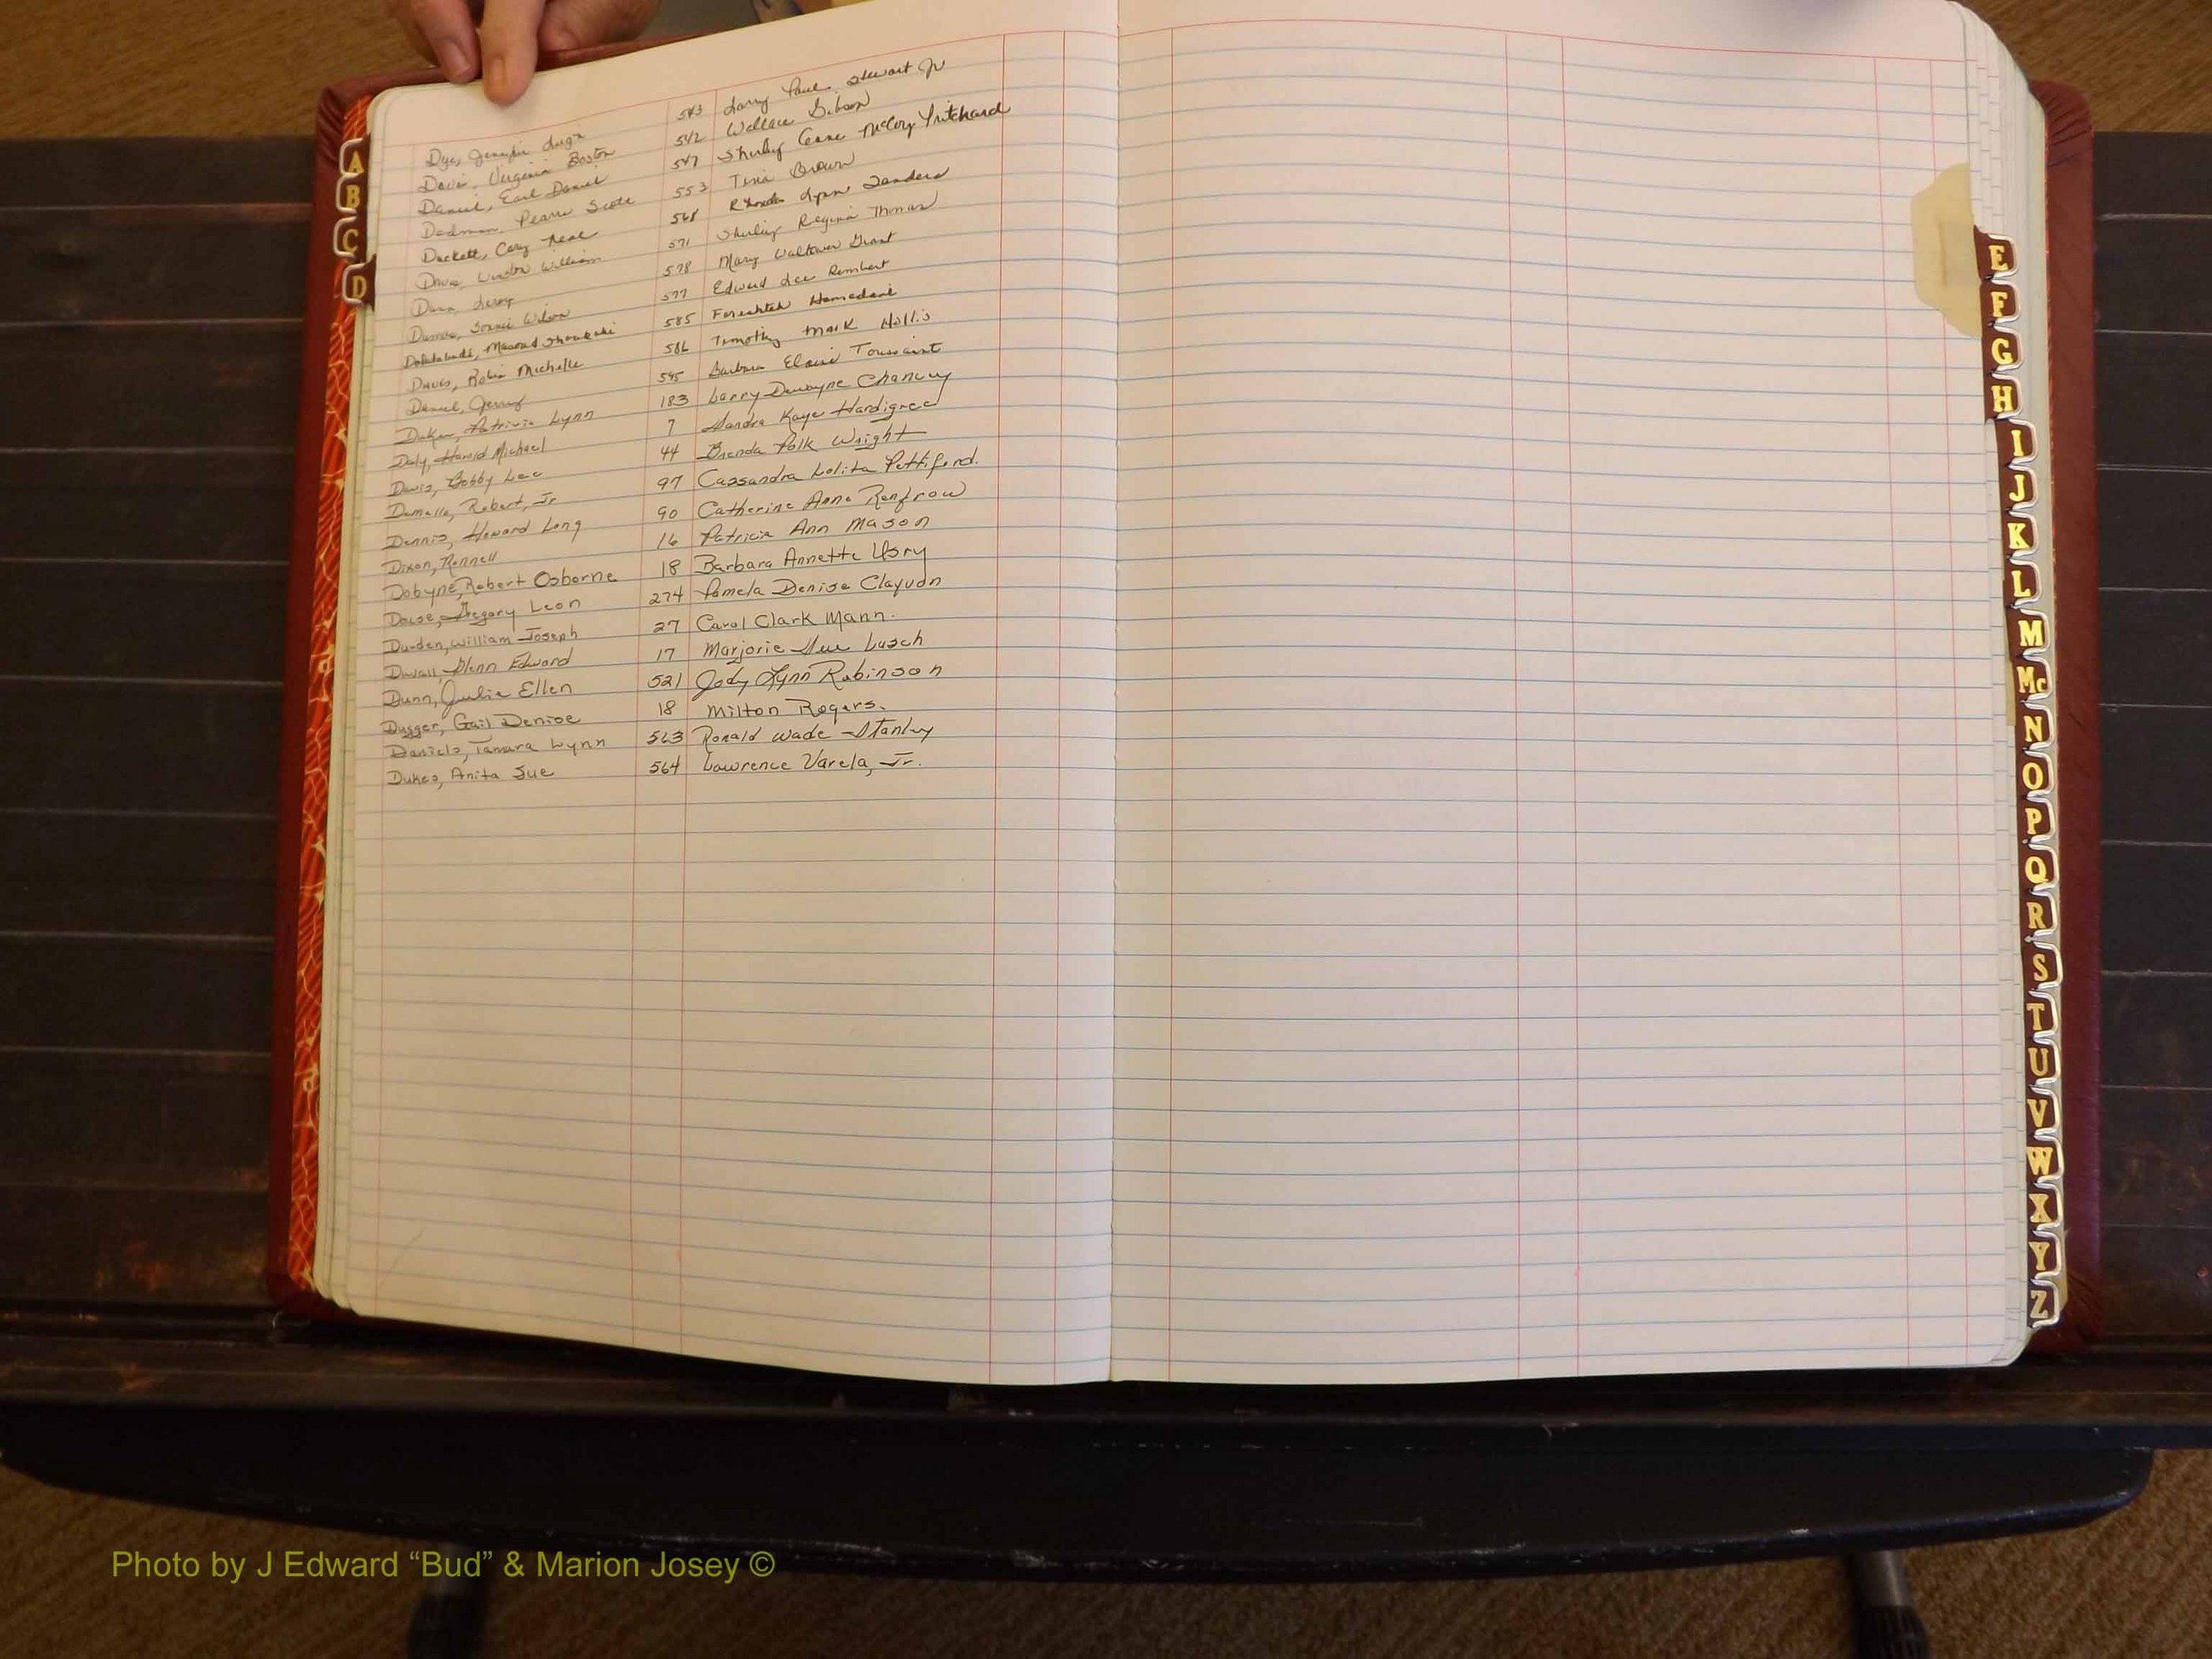 Dye, Jennifer 543 Larry Paul Stewart Jr
Davis, Virginia Boston 542 Wallace Gibson
Daniel, Earl Daniel 547 Shirley Gene McCoy Pritchard
Dedman, Scott 553 Tina Brown
Duckett, Cary Neal 568 Rhonda Lynn Sanders
Davis, William 571 Shirley Regina Thomas
Dunn, Leroy 578 Mary Grant
Wilson 577 Edward Lee Rembert
Masoud 585 Fereshteh Hamedani
Davis, Robin Michelle 586 Timothy Mark Hollis
Daniel, Jerry 595 Barbara Elaine Toussaint
Duke, Patricia Lynn 183 Larry Dewayne Chancey
Daly, Harold Michael 7 Sandra Kaye Hardigree
Davis, Bobby Lee 44 Brenda Polk Wright
Robert, Jr 97 Cassandra Lolita Pettiford.
Dennis, Howard Long 90 Catherine Anne Renfrow
Dixon, Rennell 16 Patricia Ann Mason
Dobyne, Robert Osborne 18 Barbara Annette Usry
Dowse, Gregory Leon 274 Pamela Denise
Durden, William Joseph 27 Carol Clark Mann.
Duvall, Glenn Edward 17 Marjorie Sue Lusch
Dunn, Julie Ellen 521 Jody Lynn Robinson
Dugger, Gail Denise 18 Milton Rogers.
Daniels, Tamara Lynn 563 Ronald Wade Stanley
Dukes, Anita Sue 564 Lawrence Varela, Jr.
A
B
C
D
E
F
G
H
I
J
K
L
M
Mc
N
O
P
Q
R
S
T
U
V
W
X
Y
Z
Photo by J Edward “Bud” & Marion Josey ©